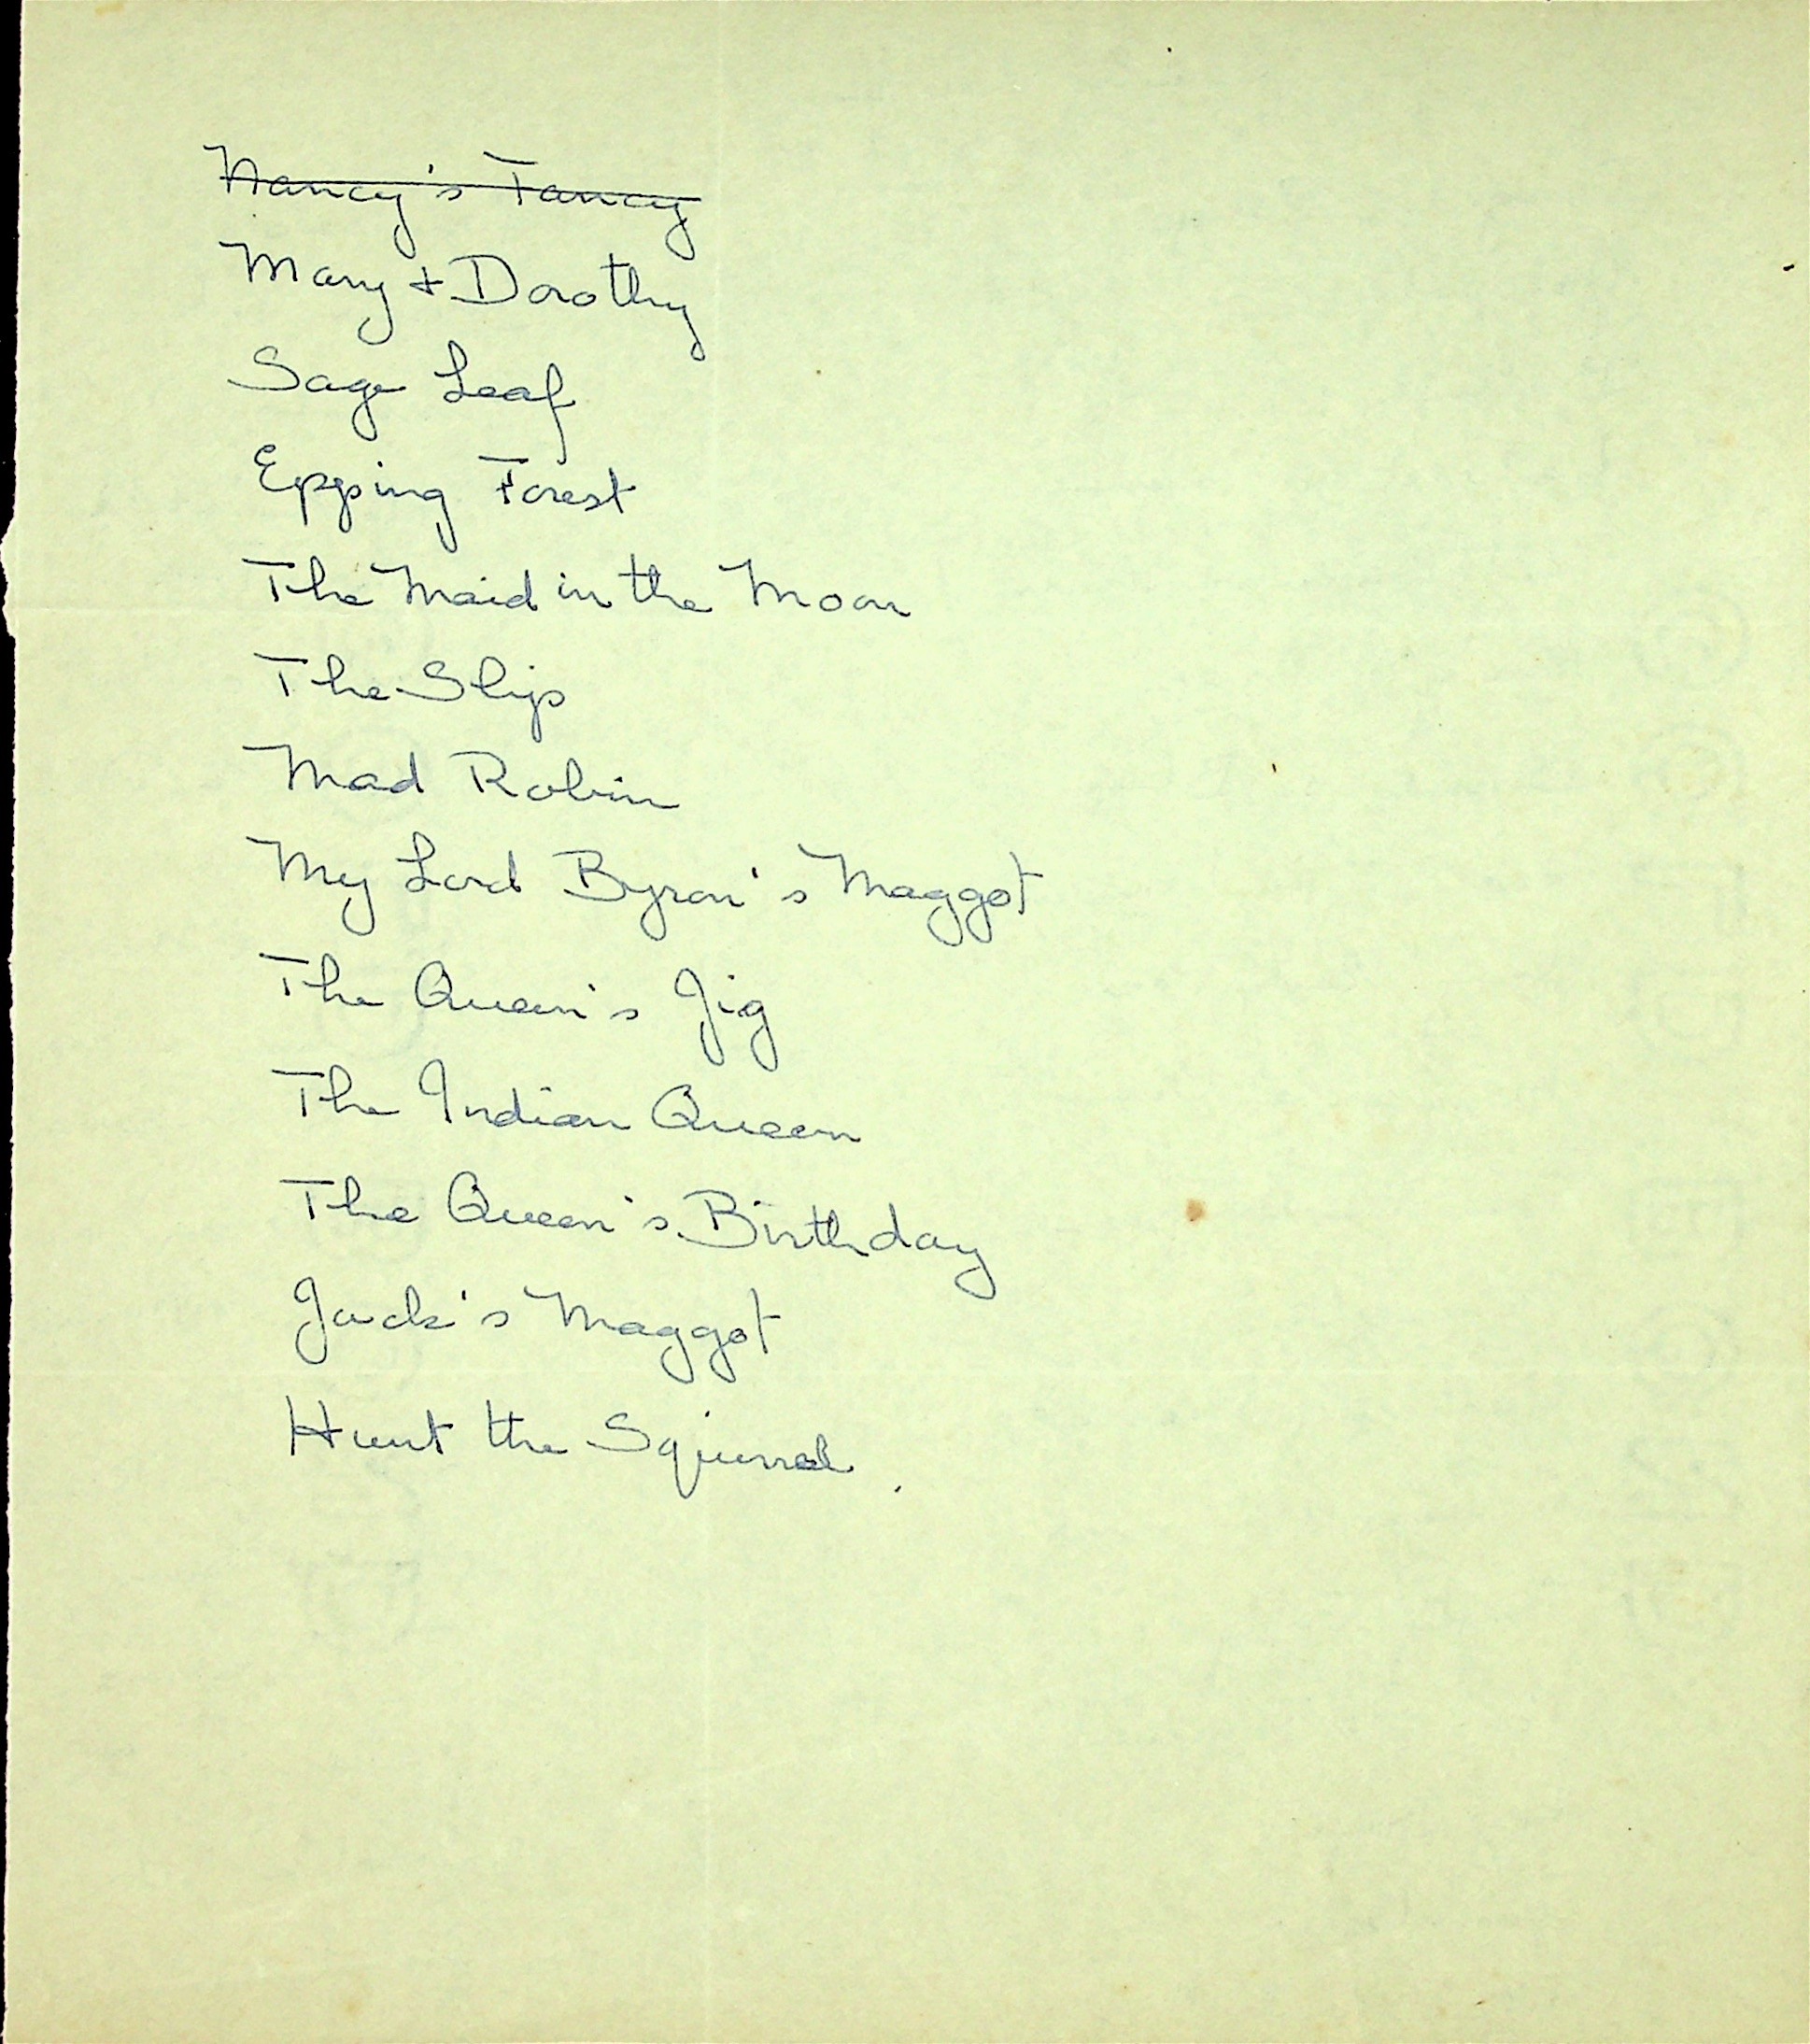 Nancy's Fancy
Mary + Dorothy
Sage Leaf
Epping Forest
The Maid in the Moon
The Slip
Mad Robin
My Lord Byron's Maggot
The Queen's Jig
The Indian Queen
The Queen's Birthday
Jack's Maggot
Hunt the Squirrel